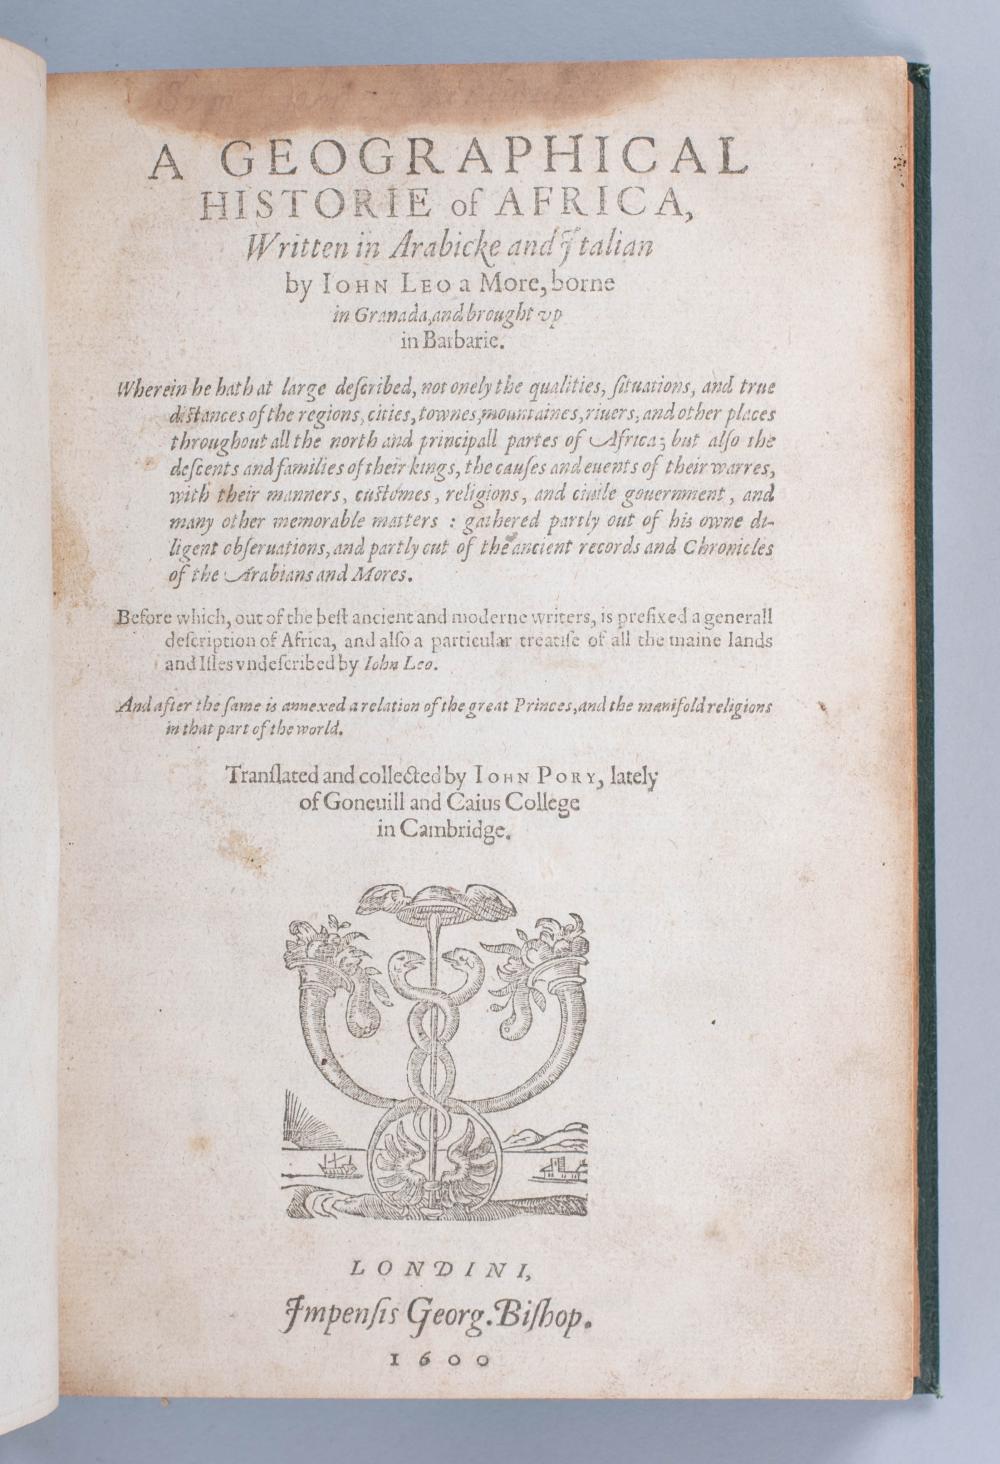 A GEOGRAPHICAL
HISTORIE of AFRICA,
Written in Arabicke and Italian
by IOHN LEO a More, borne
in Granada, and brought vp
in Barbarie.
Wherein he hath at large deſcribed, not onely the qualities, ſituations, and true
diſtances of the regions, cities, townes, mountaines, riuers, and other places
throughout all the north and principall partes of Africa; but alſo the
deſcents and families of their kings, the cauſes and euents of their warres,
with their manners, cuſtomes, religions, and ciuile gouernment, and
many other memorable matters : gathered partly out of his owne di-
ligent obſeruations, and partly out of the ancient records and Chronicles
of the Arabians and Mores.
Before which, out of the beſt ancient and moderne writers, is prefixed a generall
deſcription of Africa, and alſo a particular treatiſe of all the maine lands
and Iſles vndeſcribed by Iohn Leo.
And after the ſame is annexed a relation of the great Princes, and the manifold religions
in that part of the world.
Tranſlated and collected by IOHN PORY, lately
of Goneuill and Caius College
in Cambridge.
LONDINI,
Impenſis Georg. Biſhop.
1600